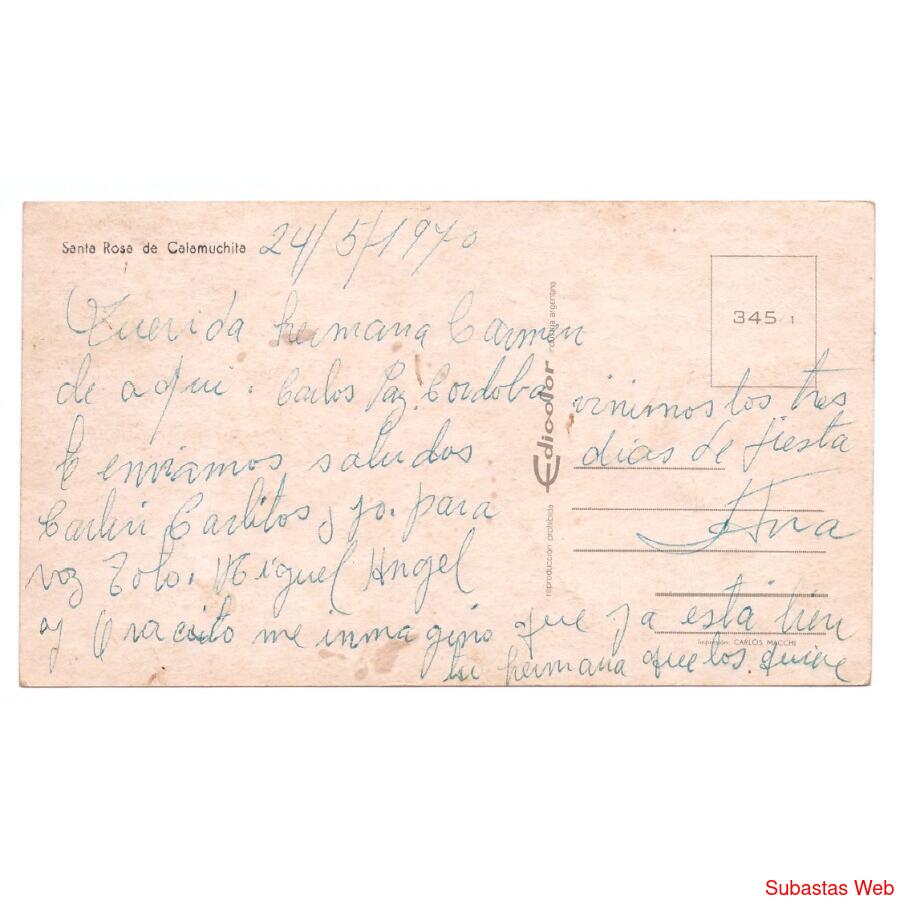 Santa Rosa de Calamuchita 24/5/1970
Querida hermana Carmen
de aqui. Carlos Paz. Cordoba
te enviamos saludos
Carlin Carlitos y yo. para
voz Tolo. Miguel Angel
y Oracito me inmagino que ya esta bien
tu hermana que los quiere
vinimos los tres
dias de fiesta
Ana
345 1
Edicolor
industria argentina
reproducción prohibida
Impresión: CARLOS MACCHI
Subastas Web